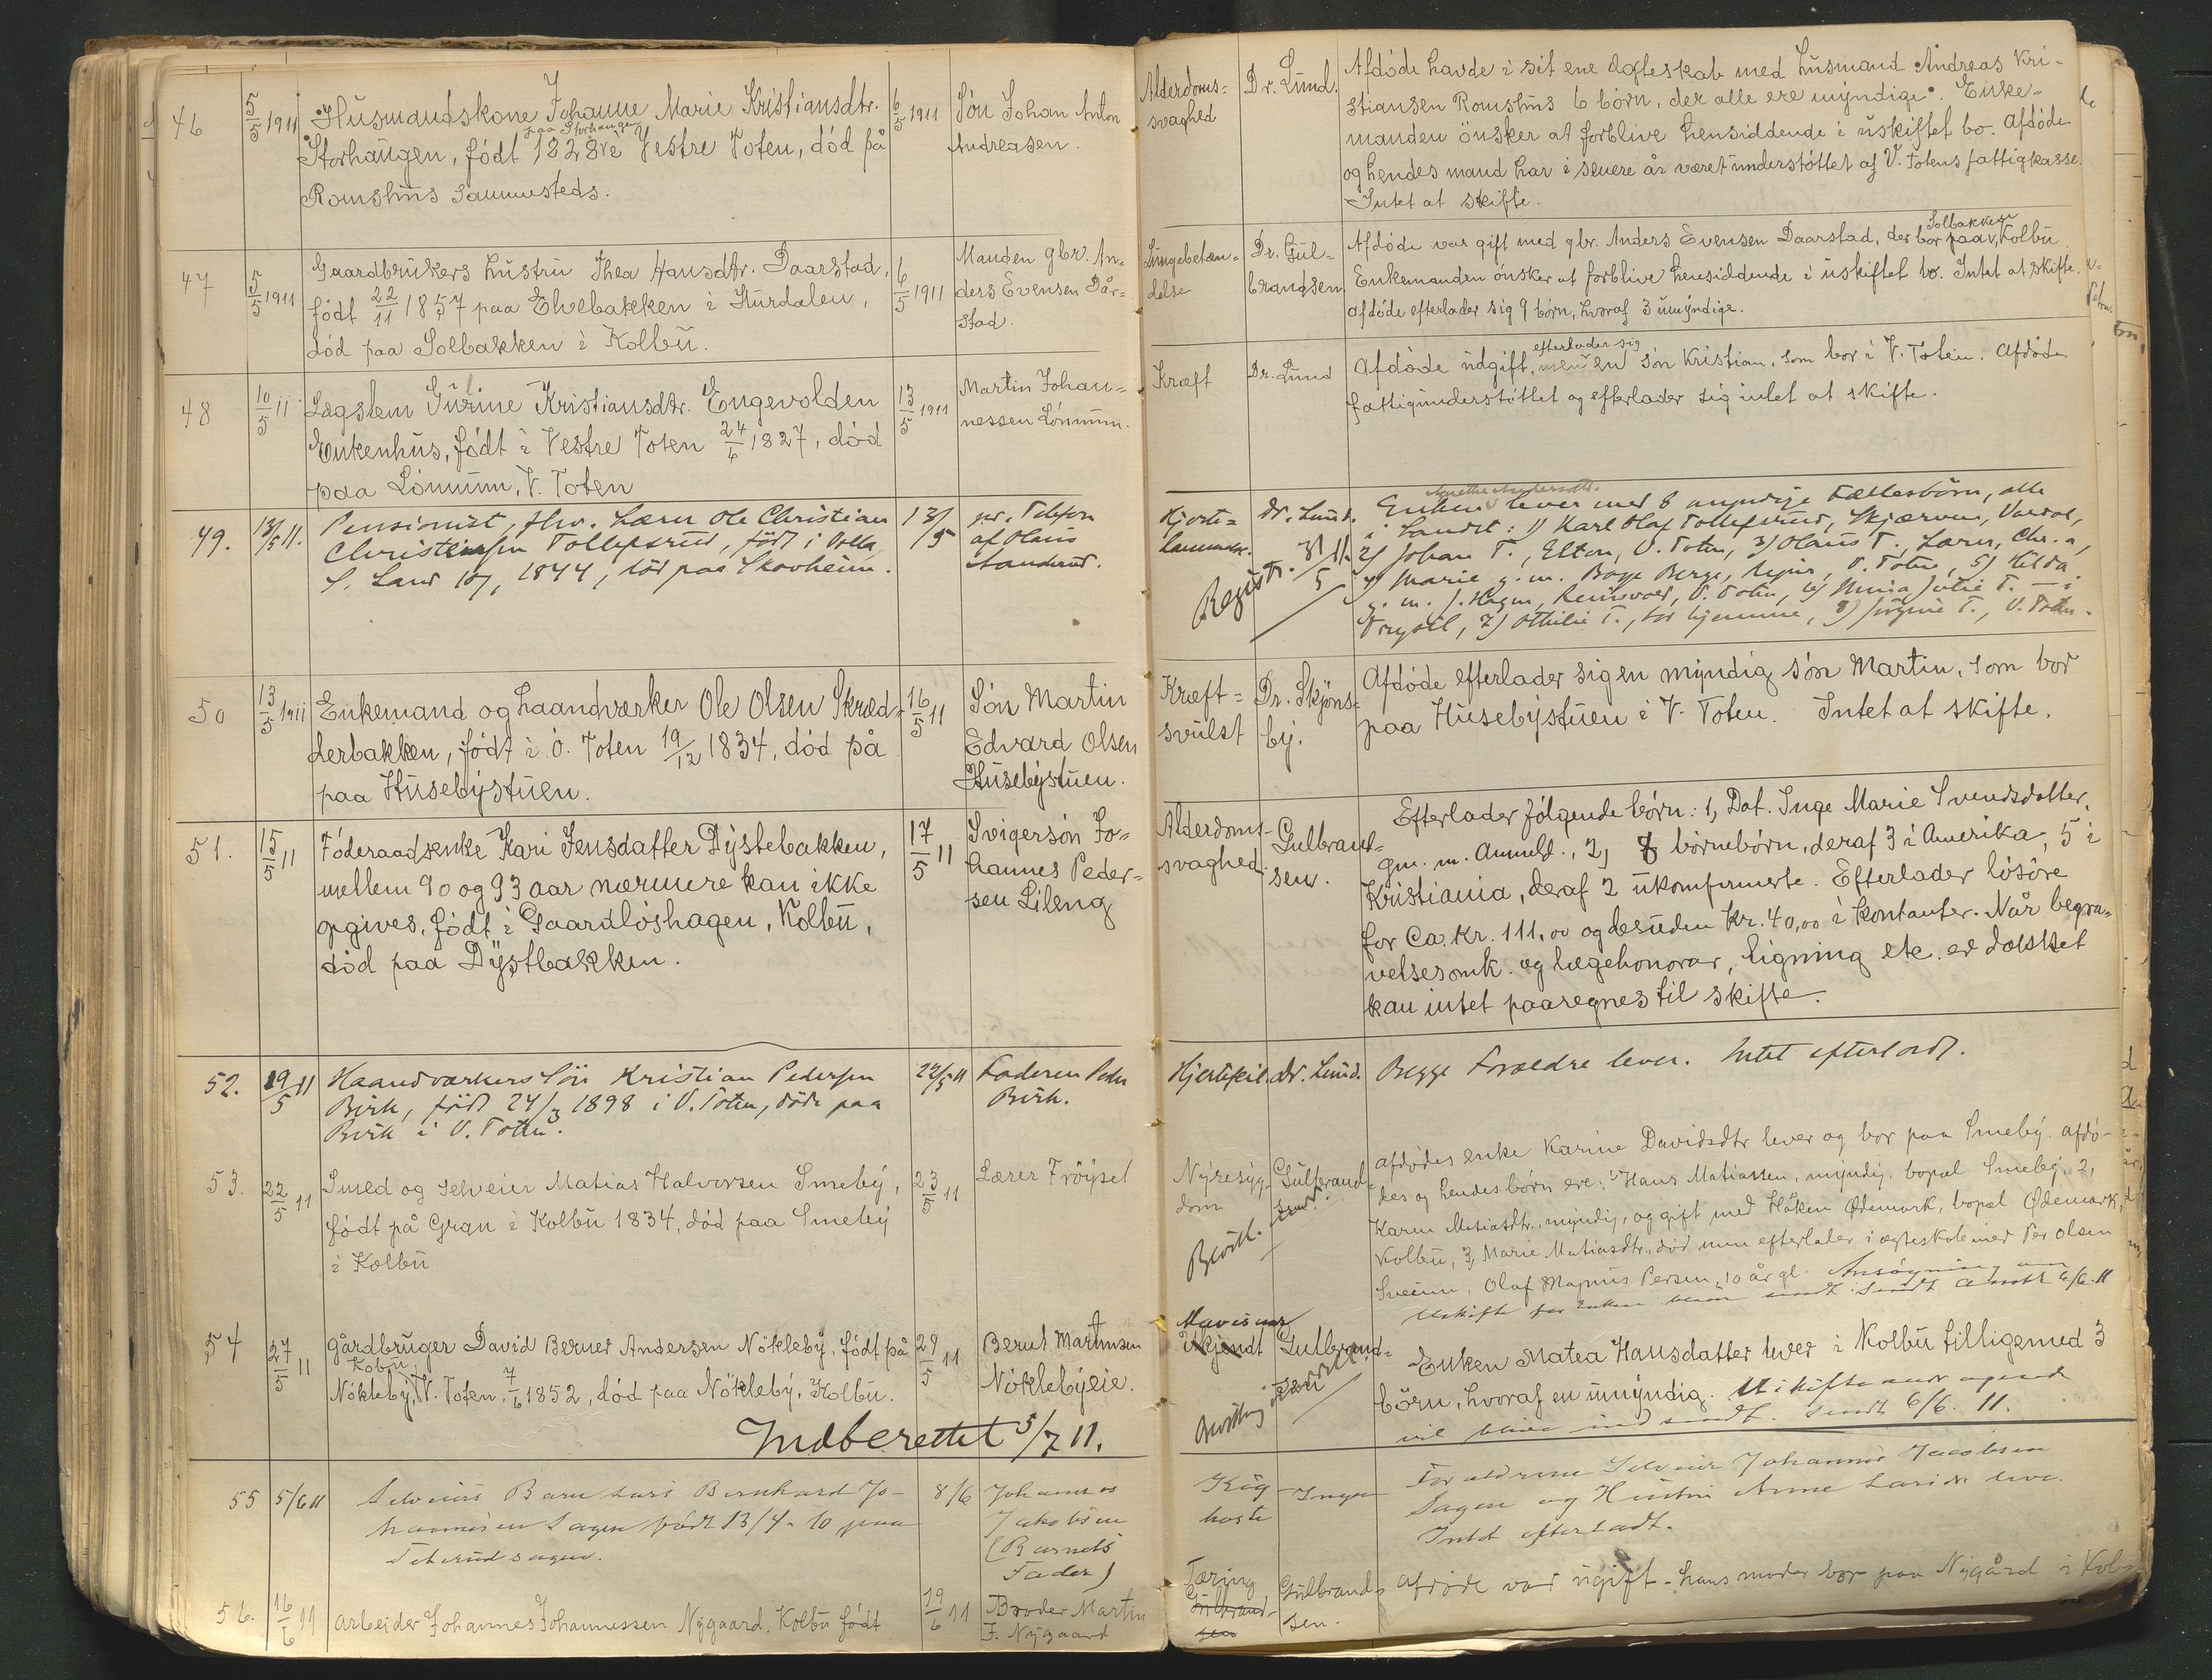 46
5/5 1911
Husmandskone Johanne Marie Kristiansdtr.
paa Storhaugen
Storhaugen, født 1828 i Vestre Toten, død på
Romshus sammesteds.
6/5 1911
Søn Johan Anton
Andreasen.
Alderdoms-
svaghed
Dr. Lund.
Afdøde havde i sit ene ægteskab med husmand Andreas Kri-
stiansen Romshus 6 børn, der alle ere myndige. Enke-
manden ønsker at forblive hensiddende i uskiftet bo. Afdøde
og hendes mand har i senere år været understøttet af V. Totens fattigkasse.
Intet at skifte.
47
5/5 1911
Gaardbrukers hustru Thea Hansdtr. Daarstad,
født 22/11 1857 paa Elvebakken i Hurdalen,
død paa Solbakken i Kolbu.
6/5 1911
Manden gbr. An-
ders Evensen Dår-
stad.
Lungebetæn-
delse
Dr. Gul-
brandsen
Solbakken
Afdøde var gift med gbr. Anders Evensen Daarstad, der bor paa Kolbu.
Enkemanden ønsker at forblive hensiddende i uskiftet bo. Intet at skifte.
Afdøde efterlader sig 9 børn, hvoraf 3 umyndige.
48
10/5 11
Lægslem Gurine Kristiansdtr. Engevolden
Enkenhus, født i Vestre Toten 24/4 1827, død
paa Lønum, V. Toten
13/5 1911
Martin Johan-
nessen Lønum.
Kræft
Dr. Lund
efterlader sig
Afdøde udgift, men en søn Kristian, som bor i V. Toten. Afdøde
fattigunderstøttet og efterlader sig intet at skifte.
49.
13/5 11.
Pensionist, fhv. Lærer Ole Christian
Christensen Tollefsrud, født i
S. Land 1844, død paa Skovheim.
13/5
pr. Telefon
af Olaus
Hjerte-
Dr. Lund.
Registr. 31/5 11.
Enken lever med 8 myndige Fællesbørn, alle
i Landet: 1) Karl Olaf Tollefsrud, Skjærven, Vardal,
2) Johan T., Elton, V. Toten, 3) Olaus T., Lærer, Chr.a,
4) Marie g. m. Berge, V. Toten, 5) Hilda
g. m. J. Hagen, Reinsvold, V. Toten, 6) Mina Julie T. i
Trysil, 7) Othilie T., bor hjemme, 8) Jørgine T., V. Toten.
50
13/5 1911
Enkemand og haandværker Ole Olsen Skræd-
derbakken, født i Ø. Toten 19/12 1834, død på
paa Husebystuen.
16/5 11
Søn Martin
Edvard Olsen
Husebystuen.
Kræft-
svulst
Dr. Skjøns-
by.
Afdøde efterlader sig en myndig søn Martin, som bor
paa Husebystuen i V. Toten. Intet at skifte.
51.
15/5 11
Føderaadsenke Kari Jensdatter Dystebakken,
mellem 90 og 93 aar nærmere kan ikke
opgives, født i Gaardløshagen, Kolbu,
død paa Dystbakken.
17/5 11
Svigersøn Jo-
hannes Peder-
sen Lileng
Alderdoms-
svaghed.
Gulbrand-
sen.
Efterlader følgende børn: 1, Dat. Inge Marie Svendsdatter,
gm. m. Anmeld., 2, 8 børnebørn, deraf 3 i Amerika, 5 i
Kristiania, deraf 2 ukonfirmerte. Efterlader løsøre
for Ca. Kr. 111,00 og desuden Kr. 40,00 i kontanter. Når begra-
velsesomk. og lægehonorar, ligning etc. er dækket
kan intet paaregnes til skifte.
52.
19/5 11
Haandværkers Søn Kristian Pedersen
Birk, født 24/3 1898 i V. Toten, døde paa
Birk i V. Toten.
22/5 11
Faderen Peder
Birk.
Hjertefeil.
Dr. Lund.
Begge Forældre lever. Intet efterladt.
53.
22/5 11
Smed og selveier Matias Halvorsen Smeby,
født på Gran i Kolbu 1834, død paa Smeby
i Kolbu
23/5 11
Lærer Frøyset
Nyresyg-
dom
Gulbrand-
sen.
Afdødes enke Karine Davidsdtr lever og bor paa Smeby. Afdø-
des og hendes børn ere: 1, Hans Matiassen, myndig, bopæl Smeby, 2,
Karen Matiasdtr., myndig, og gift med Håken Ødemark, bopæl Ødemark,
Kolbu, 3, Marie Matiasdtr., død men efterlader i ægteskab med Per Olsen
Sveum, Olaf Magnus Persen, 10 år gl. Ansøgning om
Uskifte for Enken bliver sendt. Sendt 6/6 11
54
27/5 11
Gårdbruger David Berner Andersen Nøkleby, født på
Kobu
Nøkleby, V. Toten, 7/6 1852, død paa Nøkleby, Kolbu.
29/5 11
Bernt Martinsen
Nøklebyeie.
Ukjendt
Gulbrand-
Enken Matea Hansdatter lever i Kolbu tilligemed 3
børn, hvoraf en umyndig.
vil blive indsendt. Sendt 6/6. 11.
Indberettet 5/7 11.
55
5/6 11
Selveiers Barn Lars Bernhard Jo-
hannesen Sagen født 13/4 - 10 paa
Teterudsagen.
8/6
Johannes
Jakobsen
(Barnets
Fader)
Kig-
hoste
Ingen
Forældrene Selveier Johannes Jacobsen
Sagen og Hustru Anne Larsdr lever.
Intet efterladt.
56.
16/6 11
Arbeider Johannes Johannessen Nygaard, Kolbu født
19/6 11
Broder Martin
J. Nygaard
Tæring
Gulbrand-
sen
Gulbrand-
sen.
Afdøde var ugift - hans moder bor paa Nygård i Kol-